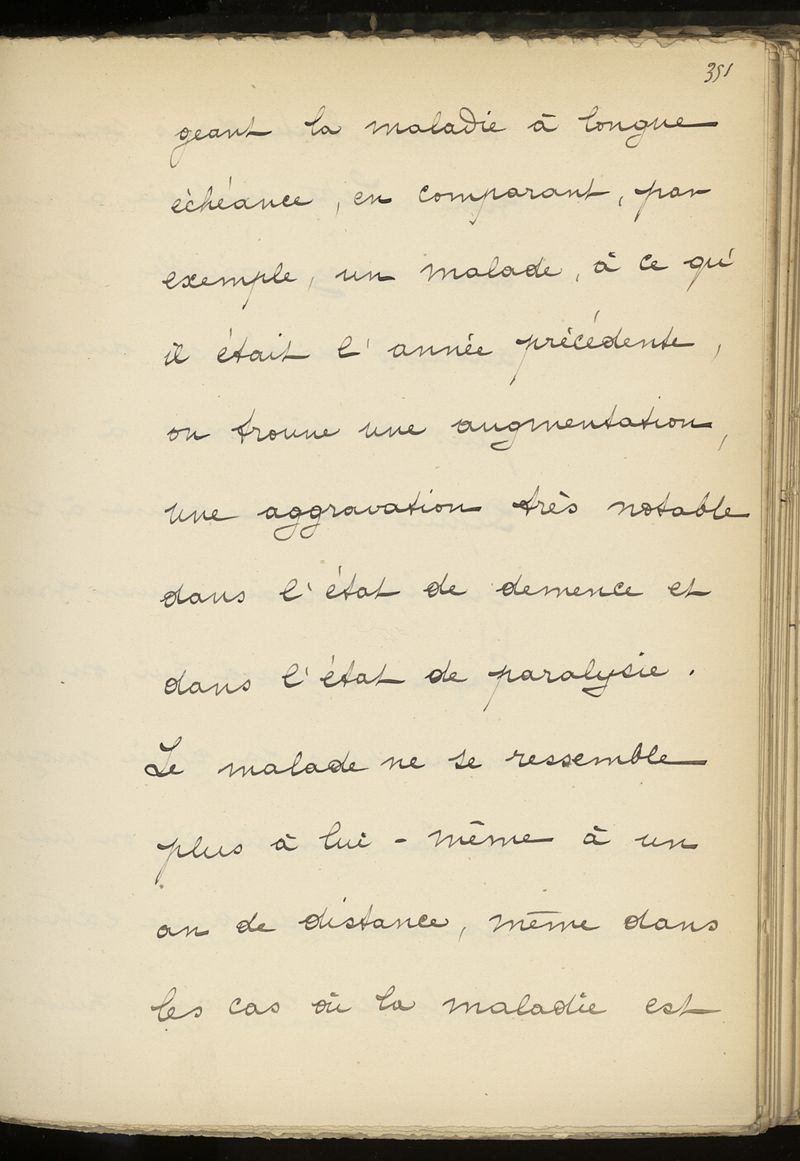 351
geant la maladie à longue
échéance, en comparant, par
exemple, un malade, à ce qu'
il était l'année précédente,
on trouve une augmentation,
une aggravation très notable
dans l'état de demence et
dans l'état de paralysie.
Le malade ne se ressemble
plus à lui-même à un
an de distance, même dans
les cas où la maladie est